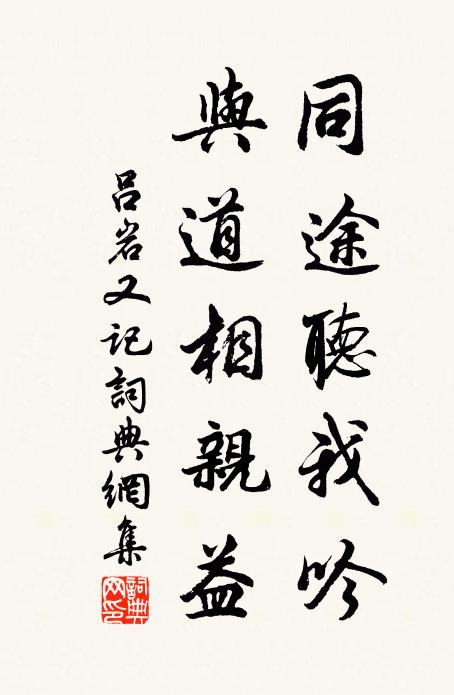 同途聽我吟
與道相親益
呂岩又記詞典網集
詞典网印